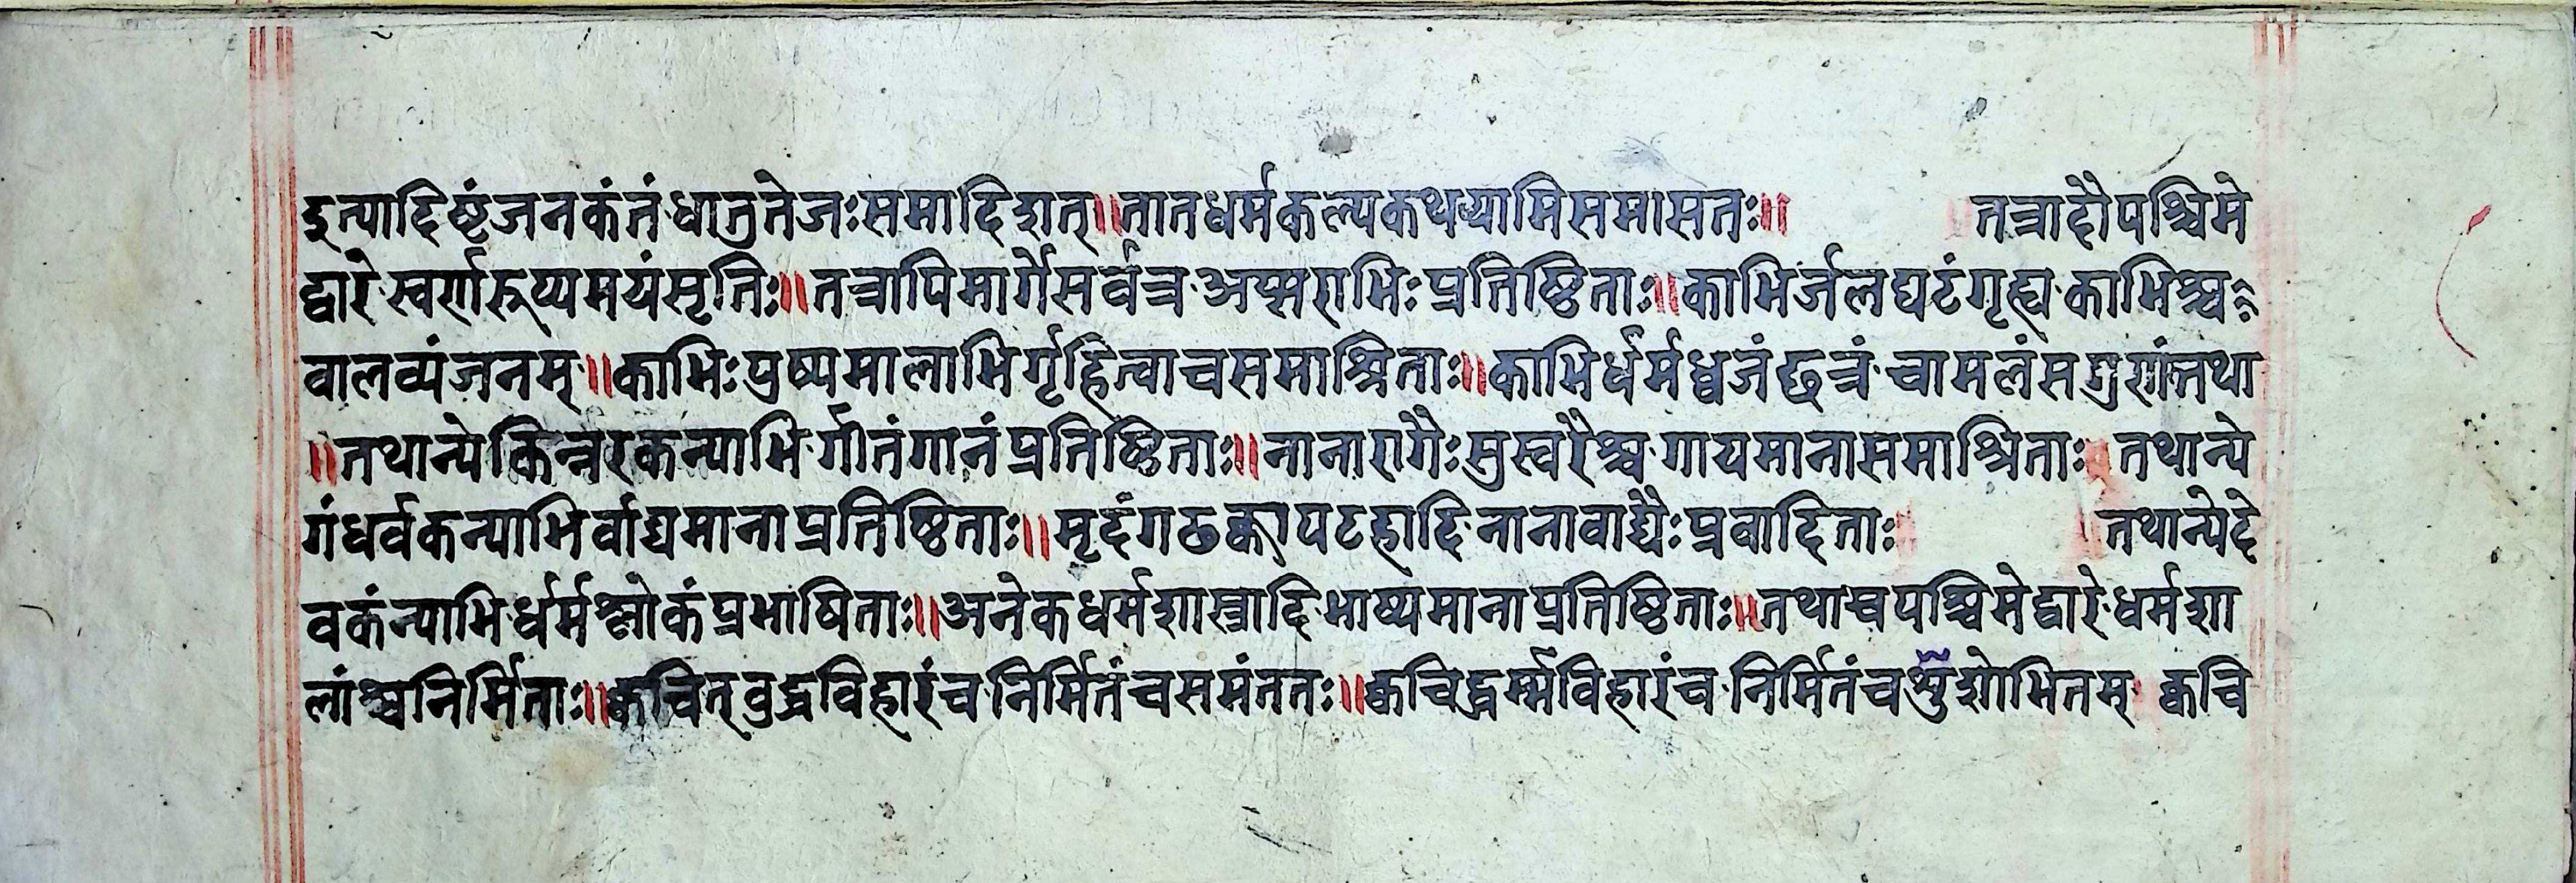 इत्यादिष्टं जनकं तं धातु तेजः समादिशत्॥ तात धर्मकल्प कथयामि समासतः॥ तत्रादौ पश्चिमे
द्वारे स्वर्णरूप्यमयं सृतिः॥ तत्रापि मार्गे सर्वत्र अप्सराभिः प्रतिष्ठिताः॥ काभिर्जलघटं गृह्य काभिश्च
वालव्यंजनम्॥ काभिः पुष्पमालाभिर्गृहित्वा च समाश्रिताः॥ काभिर्धर्मध्वजं छत्रं चामलं सगुणांतथा
॥ तथान्ये किन्नरकन्याभिर्गीतं गानं प्रतिष्ठिताः॥ नाना रागैः सुस्वरैश्च गायमाना समाश्रिताः तथान्ये
गंधर्वकन्याभिर्वाद्यमाना प्रतिष्ठिताः॥ मृदंगढक्कापटहादि नानावाद्यैः प्रवादिताः तथान्ये दे
वकंन्याभिर्धर्मश्लोकं प्रभाषिताः॥ अनेक धर्मशास्त्रादि भाष्यमाना प्रतिष्ठिताः॥ तथास्व पश्चिमे द्वारे धर्मशा
लांश्च निर्मिताः॥ क्वचित् वुद्धविहारं च निर्मितं च समंततः॥ क्वचिद्धर्म्मविहारं च निर्मितं च सुशोभितम् क्वचि